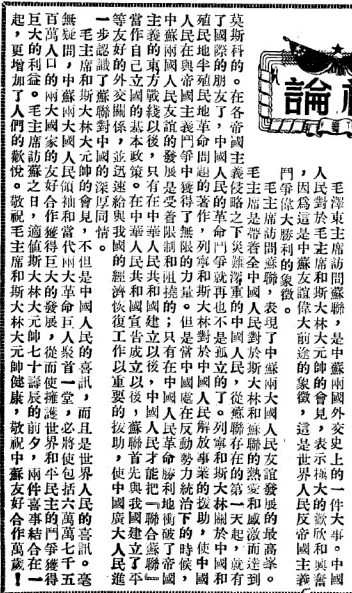 社論
毛澤東主席訪問蘇聯，是中蘇兩國外交史上的一件大事。中國
人民對於毛主席和斯大林大元帥的會見，表示極大的歡欣和興奮
，因爲這是中蘇友誼偉大前途的象徵，這是世界人民反帝國主義
鬥爭偉大勝利的象徵。
毛主席訪問蘇聯，表現了中蘇兩大國人民友誼發展的最高峯。
毛主席是帶着全中國人民對於斯大林和蘇聯的熱愛和感激而達到
莫斯科的。在各帝國主義侵略之下災難深重的中國人民，從蘇聯存在的第一天起，就有
了國際的朋友了，中國人民的革命鬥爭就再也不是孤立的了。列寧和斯大林關於中國和
殖民地半殖民地革命問題的著作，列寧和斯大林對於中國人民解放事業的援助，使中國
人民在與帝國主義鬥爭中獲得了無限的力量。但是當中國處在反動勢力統治下的時候，
中蘇兩國人民友誼的發展是受着限制和阻撓的；只有在中國人民革命勝利地衝破了帝國
主義的東方戰綫以後，只有在中華人民共和國建立以後，中國人民才能把『聯合蘇聯』
當作自己立國的基本政策。在中華人民共和國宣告成立以後，蘇聯首先與我國建立了平
等友好的外交關係，並迅速給與我國的經濟恢復工作以重要的援助，使中國廣大人民進
一步認識了蘇聯對中國的深厚同情。
毛主席和斯大林大元帥的會見，不但是中國人民的喜訊，而且是世界人民的喜訊。毫
無疑問，中蘇兩大國人民領袖和當代兩大革命巨人聚首一堂，必將使包括六萬萬七千五
百萬人口的兩大國家的友好合作獲得巨大的發展，從而使擁護世界和平民主的鬥爭獲得
巨大的利益。毛主席訪蘇之日，適值斯大林大元帥七十壽辰的前夕，兩件喜事結合在一
起，更增加了人們的歡悅。敬祝毛主席和斯大林大元帥健康，敬祝中蘇友好合作萬歲！